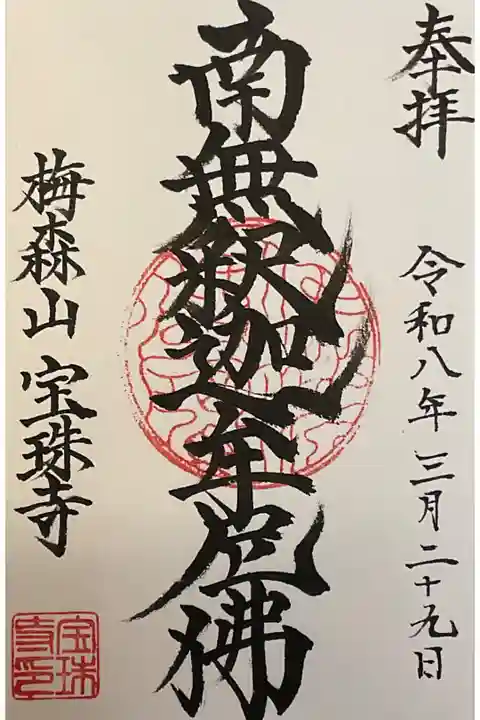 奉拝
令和八年 三月二十九日
南無釈迦牟尼佛
梅森山 宝珠寺
宝珠寺印